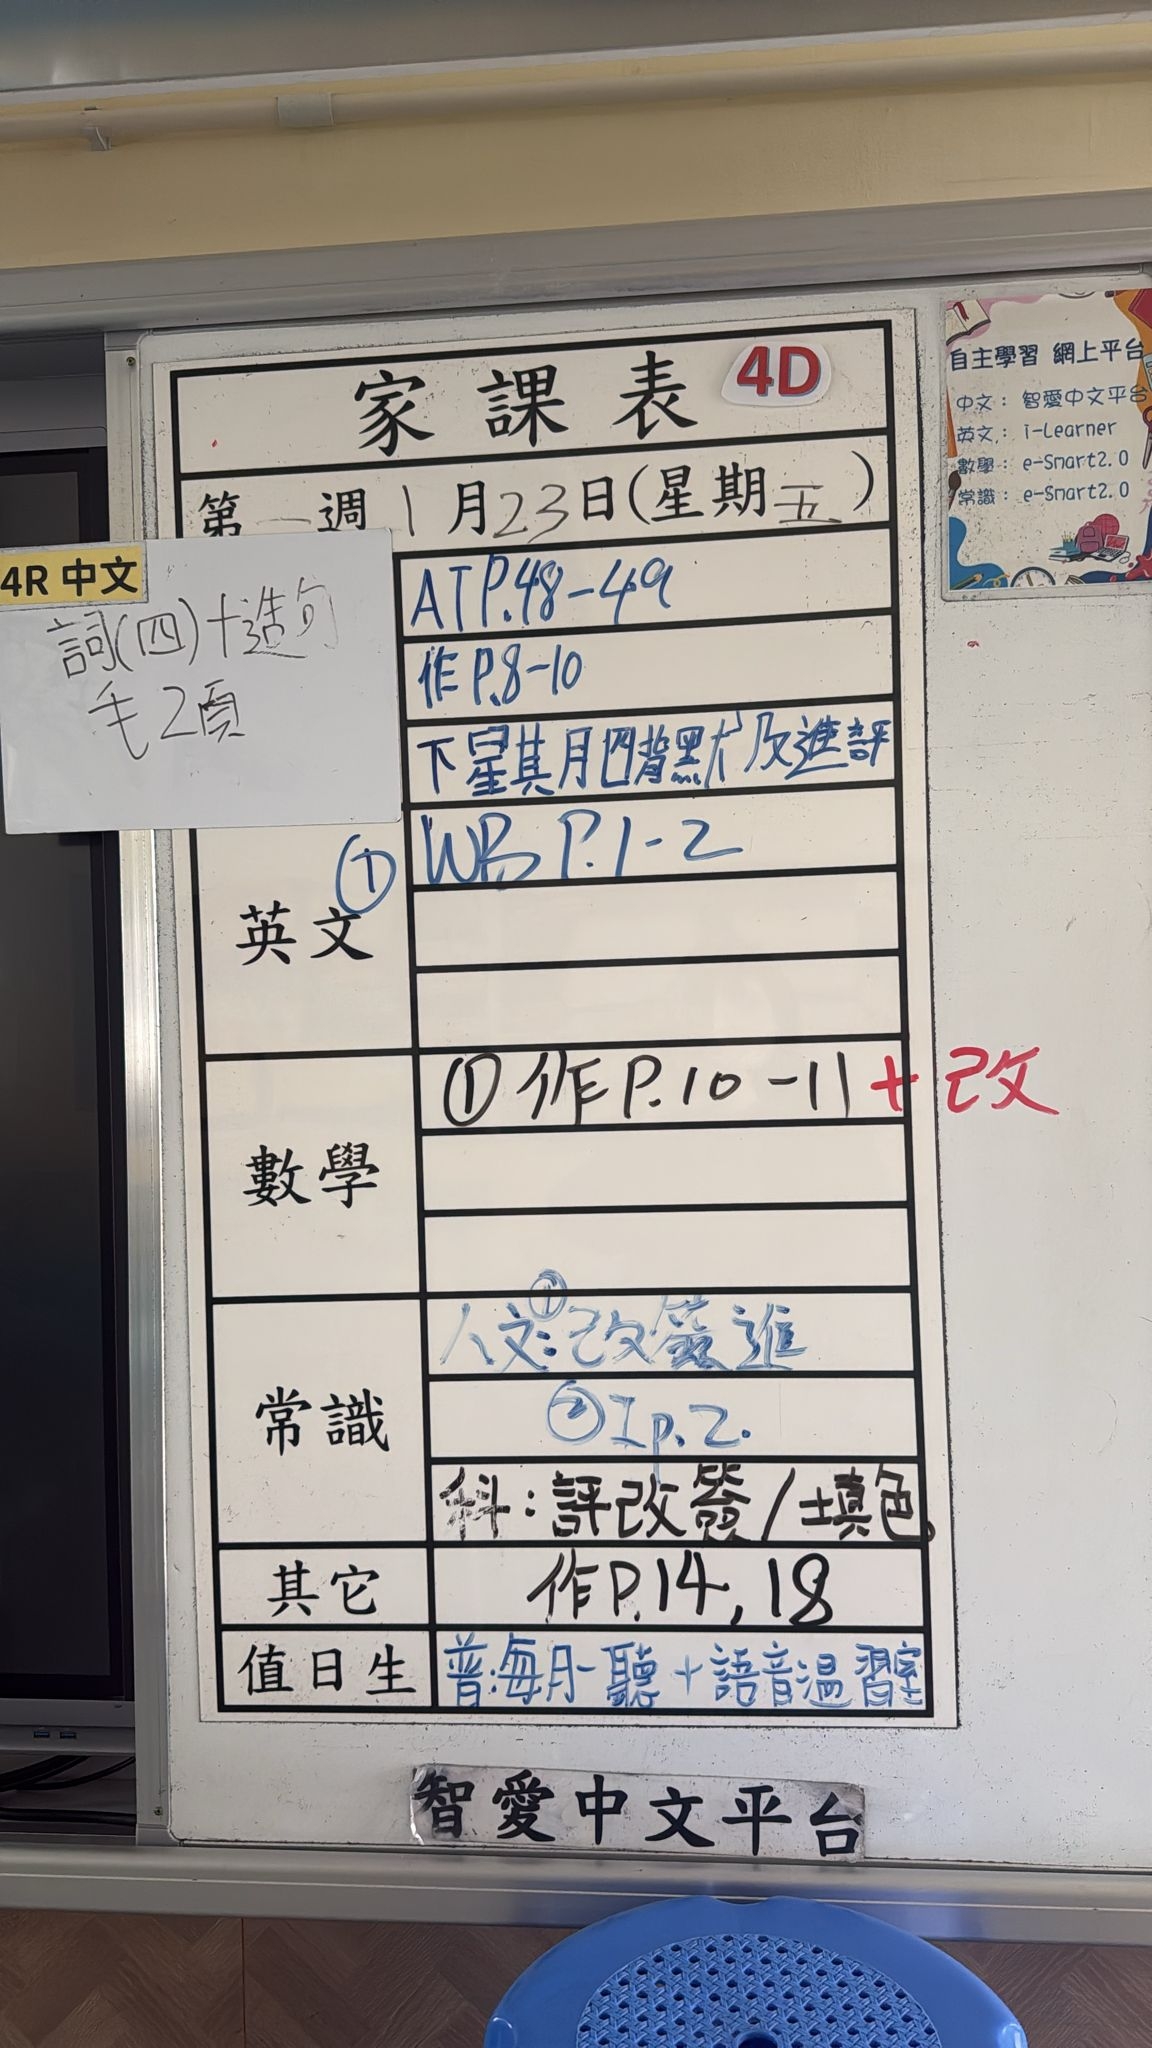 家課表 4D
第一週 1月23日(星期五)
4R 中文
詞(四)+造句
毛2頁
ATP.48-49
作P.8-10
下星期四背默及進評
英文
① WB P.1-2
數學
①作P.10-11+改
常識
人文:①改簽進
②Ip.2.
科:評改簽/填色。
其它
作P.14,18
值日生
普:每月一聽+語音溫習室
智愛中文平台
自主學習 網上平台
中文:智愛中文平台
英文:i-Learner
數學:e-Smart2.0
常識:e-Smart2.0